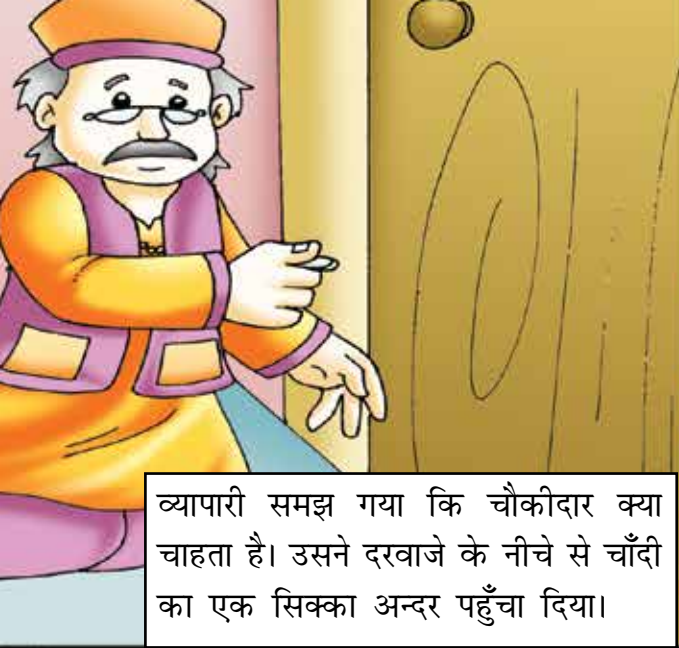 व्यापारी समझ गया कि चौकीदार क्या
चाहता है। उसने दरवाजे के नीचे से चाँदी
का एक सिक्का अन्दर पहुँचा दिया।